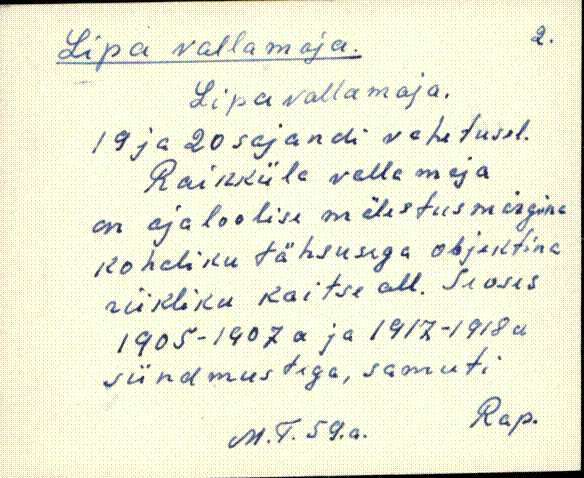 Lipa vallamaja.
2.
Lipa vallamaja.
19 ja 20 sajandi vahetusel.
Raikküla valla maja
on ajaloolise mälestusmärgina
kohaliku tähsusega objektina
riikliku kaitse all. Seoses
1905-1907 a ja 1917-1918 a
sündmustega, samuti
M.T. 59.a.
Rap.